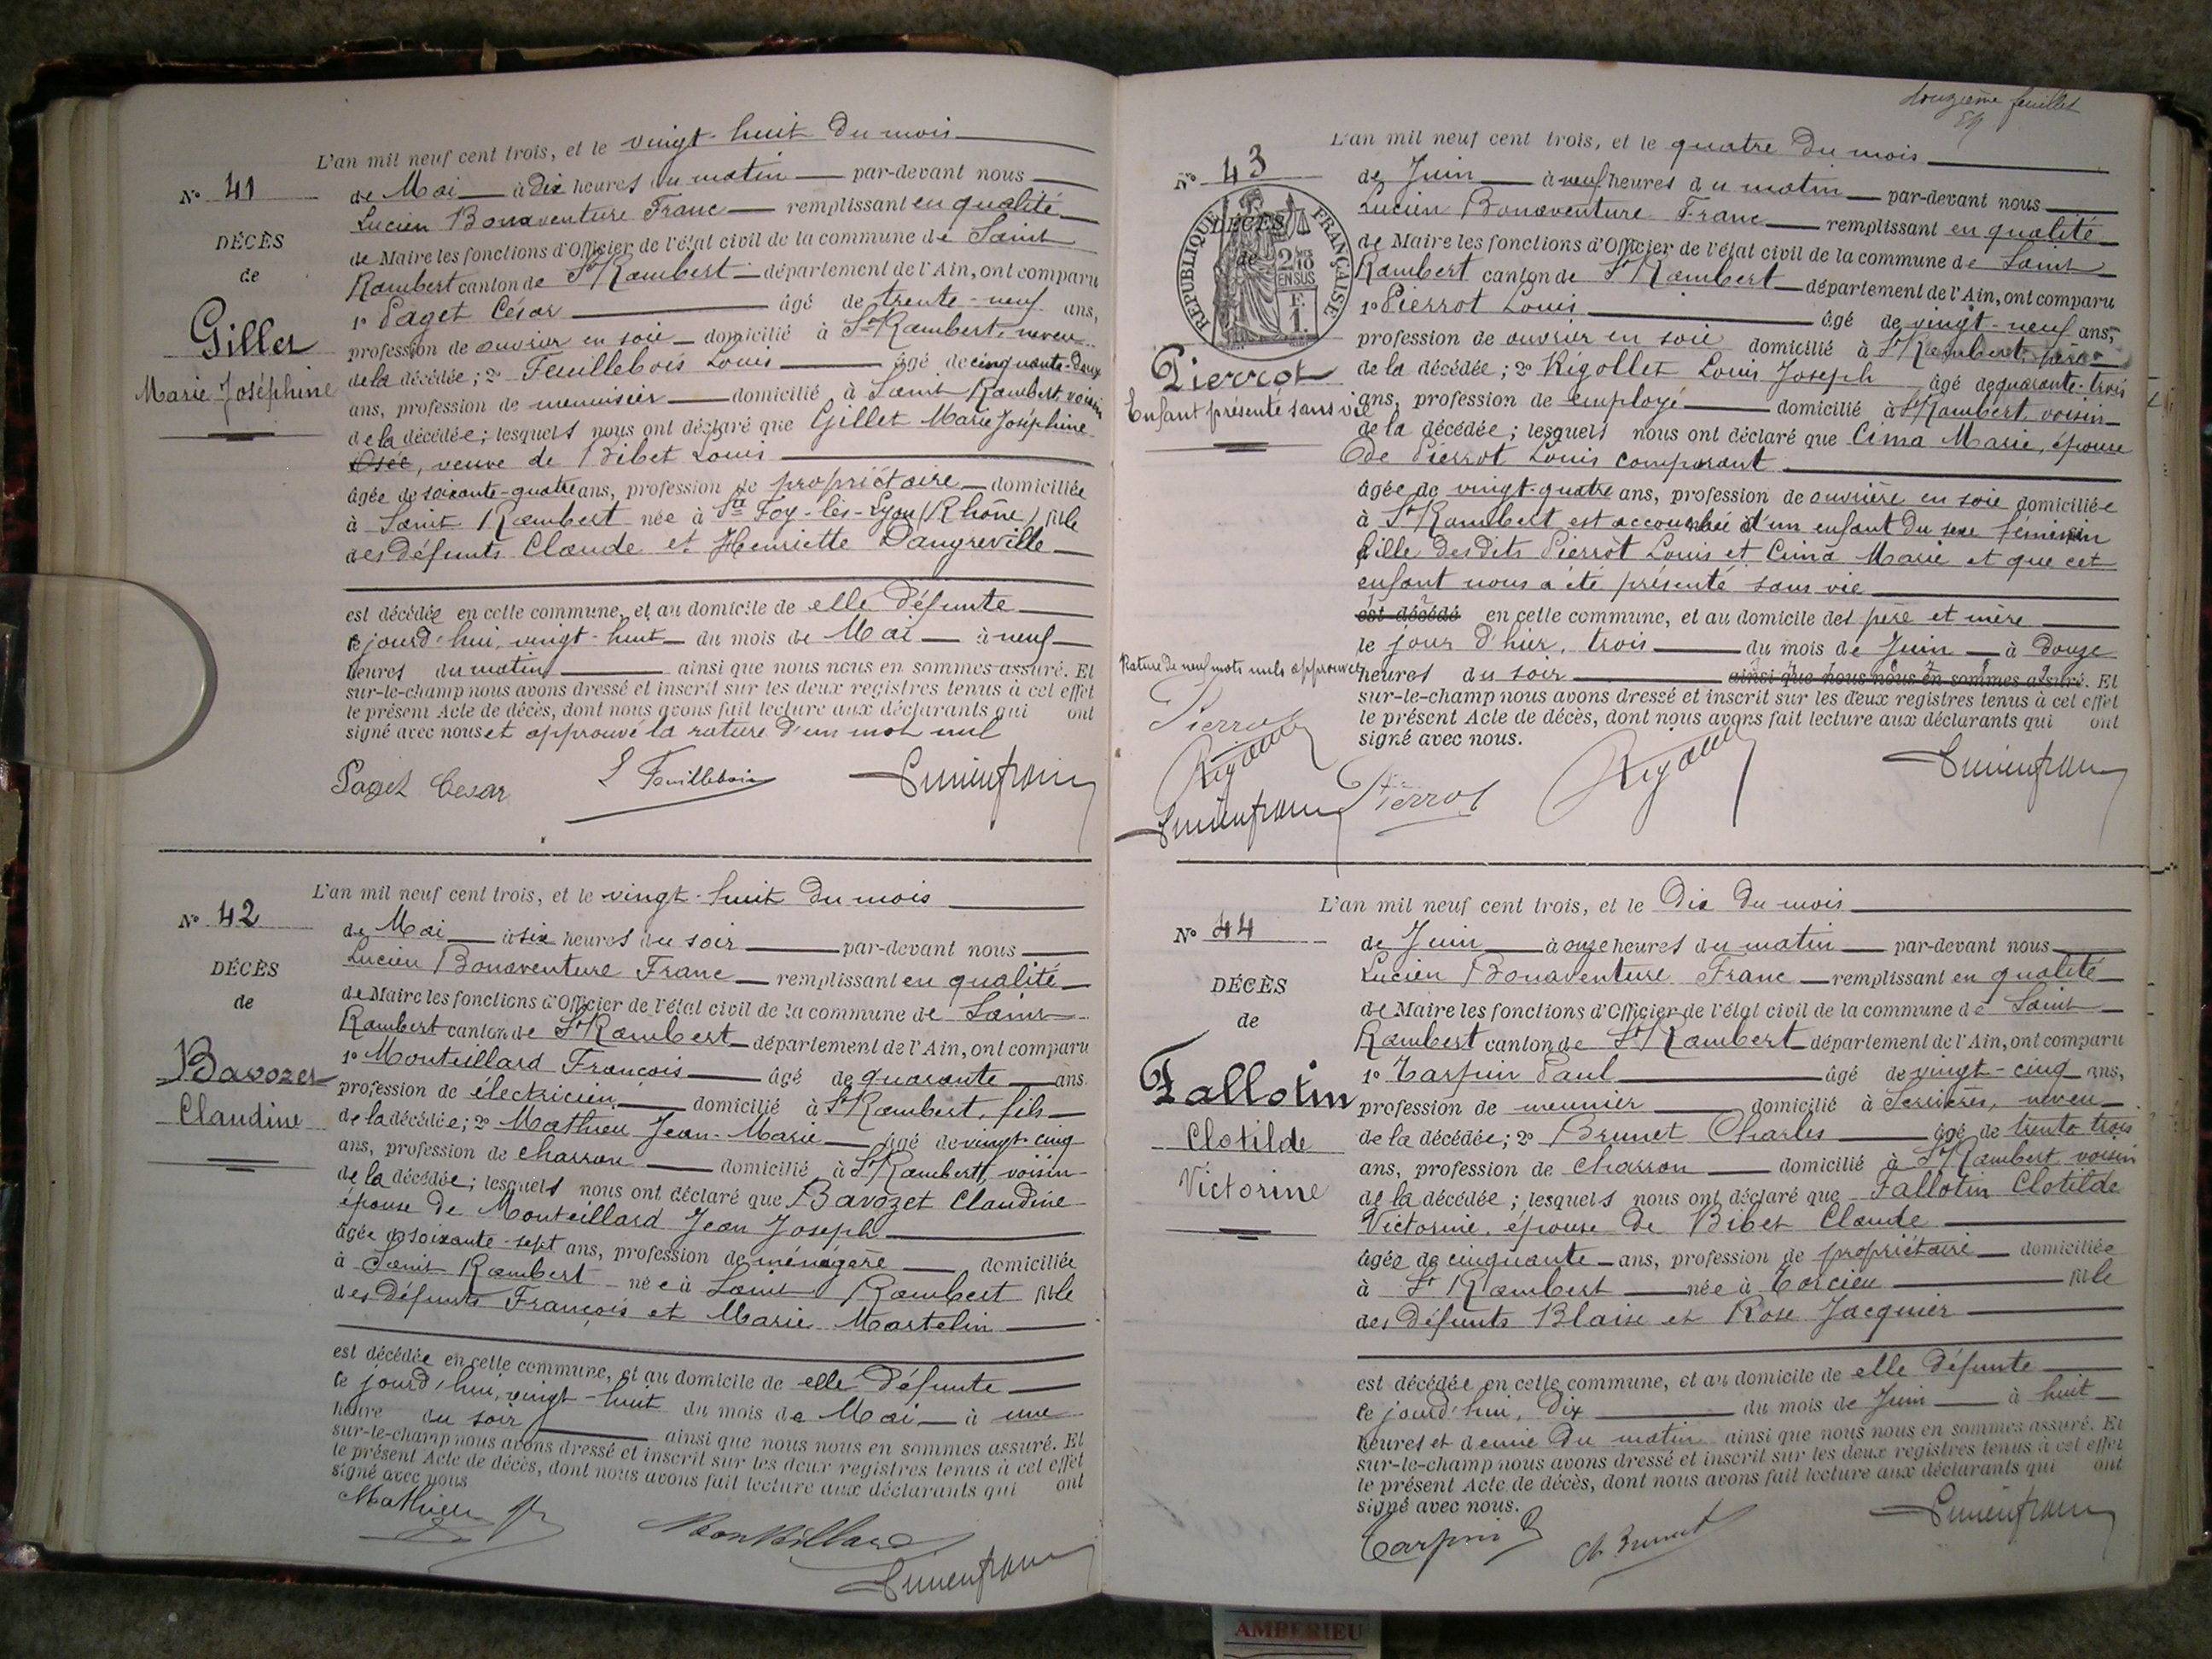 L'an mil neuf cent trois, et le vingt-huit du mois
N° 41
de Mai à dix heures du matin par-devant nous
Lucien Bonaventure Franc remplissant en qualité
DÉCÈS
de Maire les fonctions d'Officier de l'état civil de la commune de Saint
de
Rambert canton de St Rambert département de l'Ain, ont comparu
Gillet
1° Paget César âgé de trente-neuf ans,
profession de ouvrier en soie domicilié à St Rambert, neveu
Marie Joséphine
de la décédée; 2° Feuillebois Louis âgé de cinquante-deux
ans, profession de menuisier domicilié à Saint Rambert voisin
de la décédée; lesquels nous ont déclaré que Gillet Marie Joséphine
, veuve de Bibet Louis
âgée de soixante-quatre ans, profession de propriétaire domiciliée
à Saint Rambert née à Ste Foy-lès-Lyon (Rhône) fille
des défunts Claude et Henriette Dangreville
est décédée en cette commune, et au domicile de elle défunte
le jourd'hui, vingt-huit du mois de Mai à neuf
heures du matin ainsi que nous nous en sommes assuré. Et
sur-le-champ nous avons dressé et inscrit sur les deux registres tenus à cet effet
le présent Acte de décès, dont nous avons fait lecture aux déclarants qui ont
signé avec nous et approuvé la rature d'un mot nul
Paget Cesar L Feuillebois Lucien franc
L'an mil neuf cent trois, et le vingt-huit du mois
N° 42
de Mai à six heures du soir par-devant nous
Lucien Bonaventure Franc remplissant en qualité
DÉCÈS
de Maire les fonctions d'Officier de l'état civil de la commune de Saint
de
Rambert canton de St Rambert département de l'Ain, ont comparu
Bavozet
1° Monteillard François âgé de quarante ans
profession de électricien domicilié à St Rambert, fils
Claudine
de la décédée; 2° Mathieu Jean-Marie âgé de vingt-cinq
ans, profession de charron domicilié à St Rambert, voisin
de la décédée; lesquels nous ont déclaré que Bavozet Claudine
épouse de Monteillard Jean Joseph
âgée de soixante-sept ans, profession de ménagère domiciliée
à Saint Rambert née à Saint Rambert fille
des défunts François et Marie Martelin
est décédée en cette commune, et au domicile de elle défunte
le jourd'hui, vingt-huit du mois de Mai à une
heure du soir ainsi que nous nous en sommes assuré. Et
sur-le-champ nous avons dressé et inscrit sur les deux registres tenus à cet effet
le présent Acte de décès, dont nous avons fait lecture aux déclarants qui ont
signé avec nous
Mathieu Monteillard
Lucien franc
douzième feuillet
L'an mil neuf cent trois, et le quatre du mois
N° 43
de Juin à neuf heures du matin par-devant nous
Lucien Bonaventure Franc remplissant en qualité
DÉCÈS
de Maire les fonctions d'Officier de l'état civil de la commune de Saint
de
RÉPUBLIQUE FRANÇAISE
2/10 EN SUS
F. 1.
Rambert canton de St Rambert département de l'Ain, ont comparu
1° Pierrot Louis âgé de vingt-neuf ans,
profession de ouvrier en soie domicilié à St Rambert, père
Pierrot
de la décédée; 2° Rigollet Louis Joseph âgé de quarante-trois
Enfant présenté sans vie
ans, profession de employé domicilié à St Rambert, voisin
de la décédée; lesquels nous ont déclaré que Cima Marie, épouse
de Pierrot Louis comparant
âgée de vingt-quatre ans, profession de ouvrière en soie domiciliée
à St Rambert est accouchée d'un enfant du sexe féminin
fille desdits Pierrot Louis et Cima Marie et que cet
enfant nous a été présenté sans vie
est décédé en cette commune, et au domicile des père et mère
le jour d'hier, trois du mois de Juin à douze
Rature de neuf mots nuls approuvée
heures du soir ainsi que nous nous en sommes assuré. Et
sur-le-champ nous avons dressé et inscrit sur les deux registres tenus à cet effet
le présent Acte de décès, dont nous avons fait lecture aux déclarants qui ont
signé avec nous.
Pierrot
Rigollet
Lucien franc
Pierrot Rigollet Lucien franc
L'an mil neuf cent trois, et le dix du mois
N° 44
de Juin à onze heures du matin par-devant nous
Lucien Bonaventure Franc remplissant en qualité
DÉCÈS
de Maire les fonctions d'Officier de l'état civil de la commune de Saint
de
Rambert canton de St Rambert département de l'Ain, ont comparu
Fallotin
1° Tarpin Paul âgé de vingt-cinq ans,
profession de meunier domicilié à Serrières, neveu
Clotilde
de la décédée; 2° Brunet Charles âgé de trente trois
ans, profession de charron domicilié à St Rambert voisin
Victorine
de la décédée; lesquels nous ont déclaré que Fallotin Clotilde
Victorine, épouse de Bibet Claude
âgée de cinquante ans, profession de propriétaire domiciliée
à St Rambert née à Torcieu fille
des défunts Blaise et Rose Jacquier
est décédée en cette commune, et au domicile de elle défunte
le jourd'hui, dix du mois de Juin à huit
heures et demie du matin ainsi que nous nous en sommes assuré. Et
sur-le-champ nous avons dressé et inscrit sur les deux registres tenus à cet effet
le présent Acte de décès, dont nous avons fait lecture aux déclarants qui ont
signé avec nous.
Tarpin P Ch Brunet Lucien franc
AMBERIEU